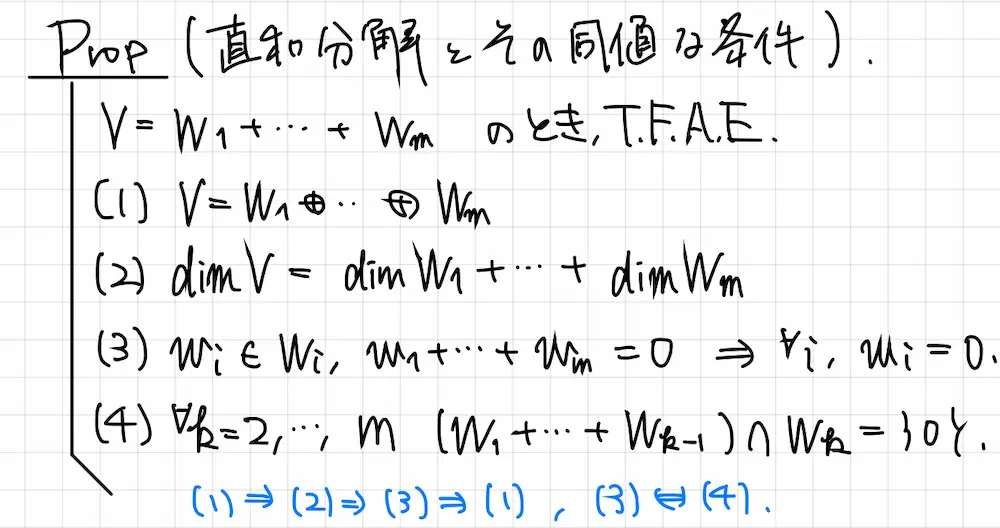 Prop (直和分解とその同値な条件).
V = W₁ + ⋯ + Wₘ のとき, T.F.A.E.
(1) V = W₁ ⊕ ⋯ ⊕ Wₘ
(2) dim V = dim W₁ + ⋯ + dim Wₘ
(3) wᵢ ∈ Wᵢ, w₁ + ⋯ + wₘ = 0 ⇒ ∀i, wᵢ = 0.
(4) ∀k = 2, ⋯, m (W₁ + ⋯ + Wₖ₋₁) ∩ Wₖ = {0}.
(1) ⇒ (2) ⇒ (3) ⇒ (1), (3) ⇔ (4).